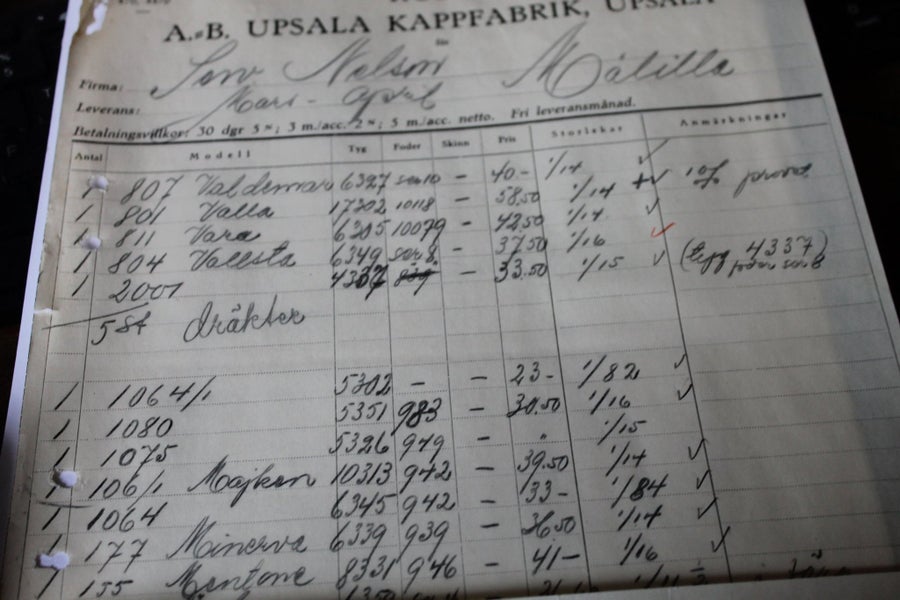 A.-B. UPSALA KAPPFABRIK, UPSALA
för
Firma: Nelson Målilla
Leverans: Mars - April
Betalningsvillkor: 30 dgr 5 %; 3 m./acc. 2 %; 5 m./acc. netto. Fri leveransmånad.
Antal Modell Tyg Foder Skinn Pris Storlekar Anmärkningar
1 807 Valdemar 6327 - 40.- 1/14
1 801 Valla 17302 10118 - 58.50 1/14
1 811 Vara 6305 10079 - 42.50 1/14
1 804 Vallsta 6349 ser 8. - 37.50 1/16
1 2001 - 33.50 1/15 4337
5 st dräkter
1 1064/1 5302 - - 23- 1/82
1 1080 5351 983 - 30.50 1/16
1 1075 5326 949 - " 1/15
1 106/1 10313 942 - 39.50 1/14
1 1064 6345 942 - 33- 1/84
1 177 Minerva 6339 939 - 36.50 1/14
1 155 Mentone 8331 946 - 41- 1/16